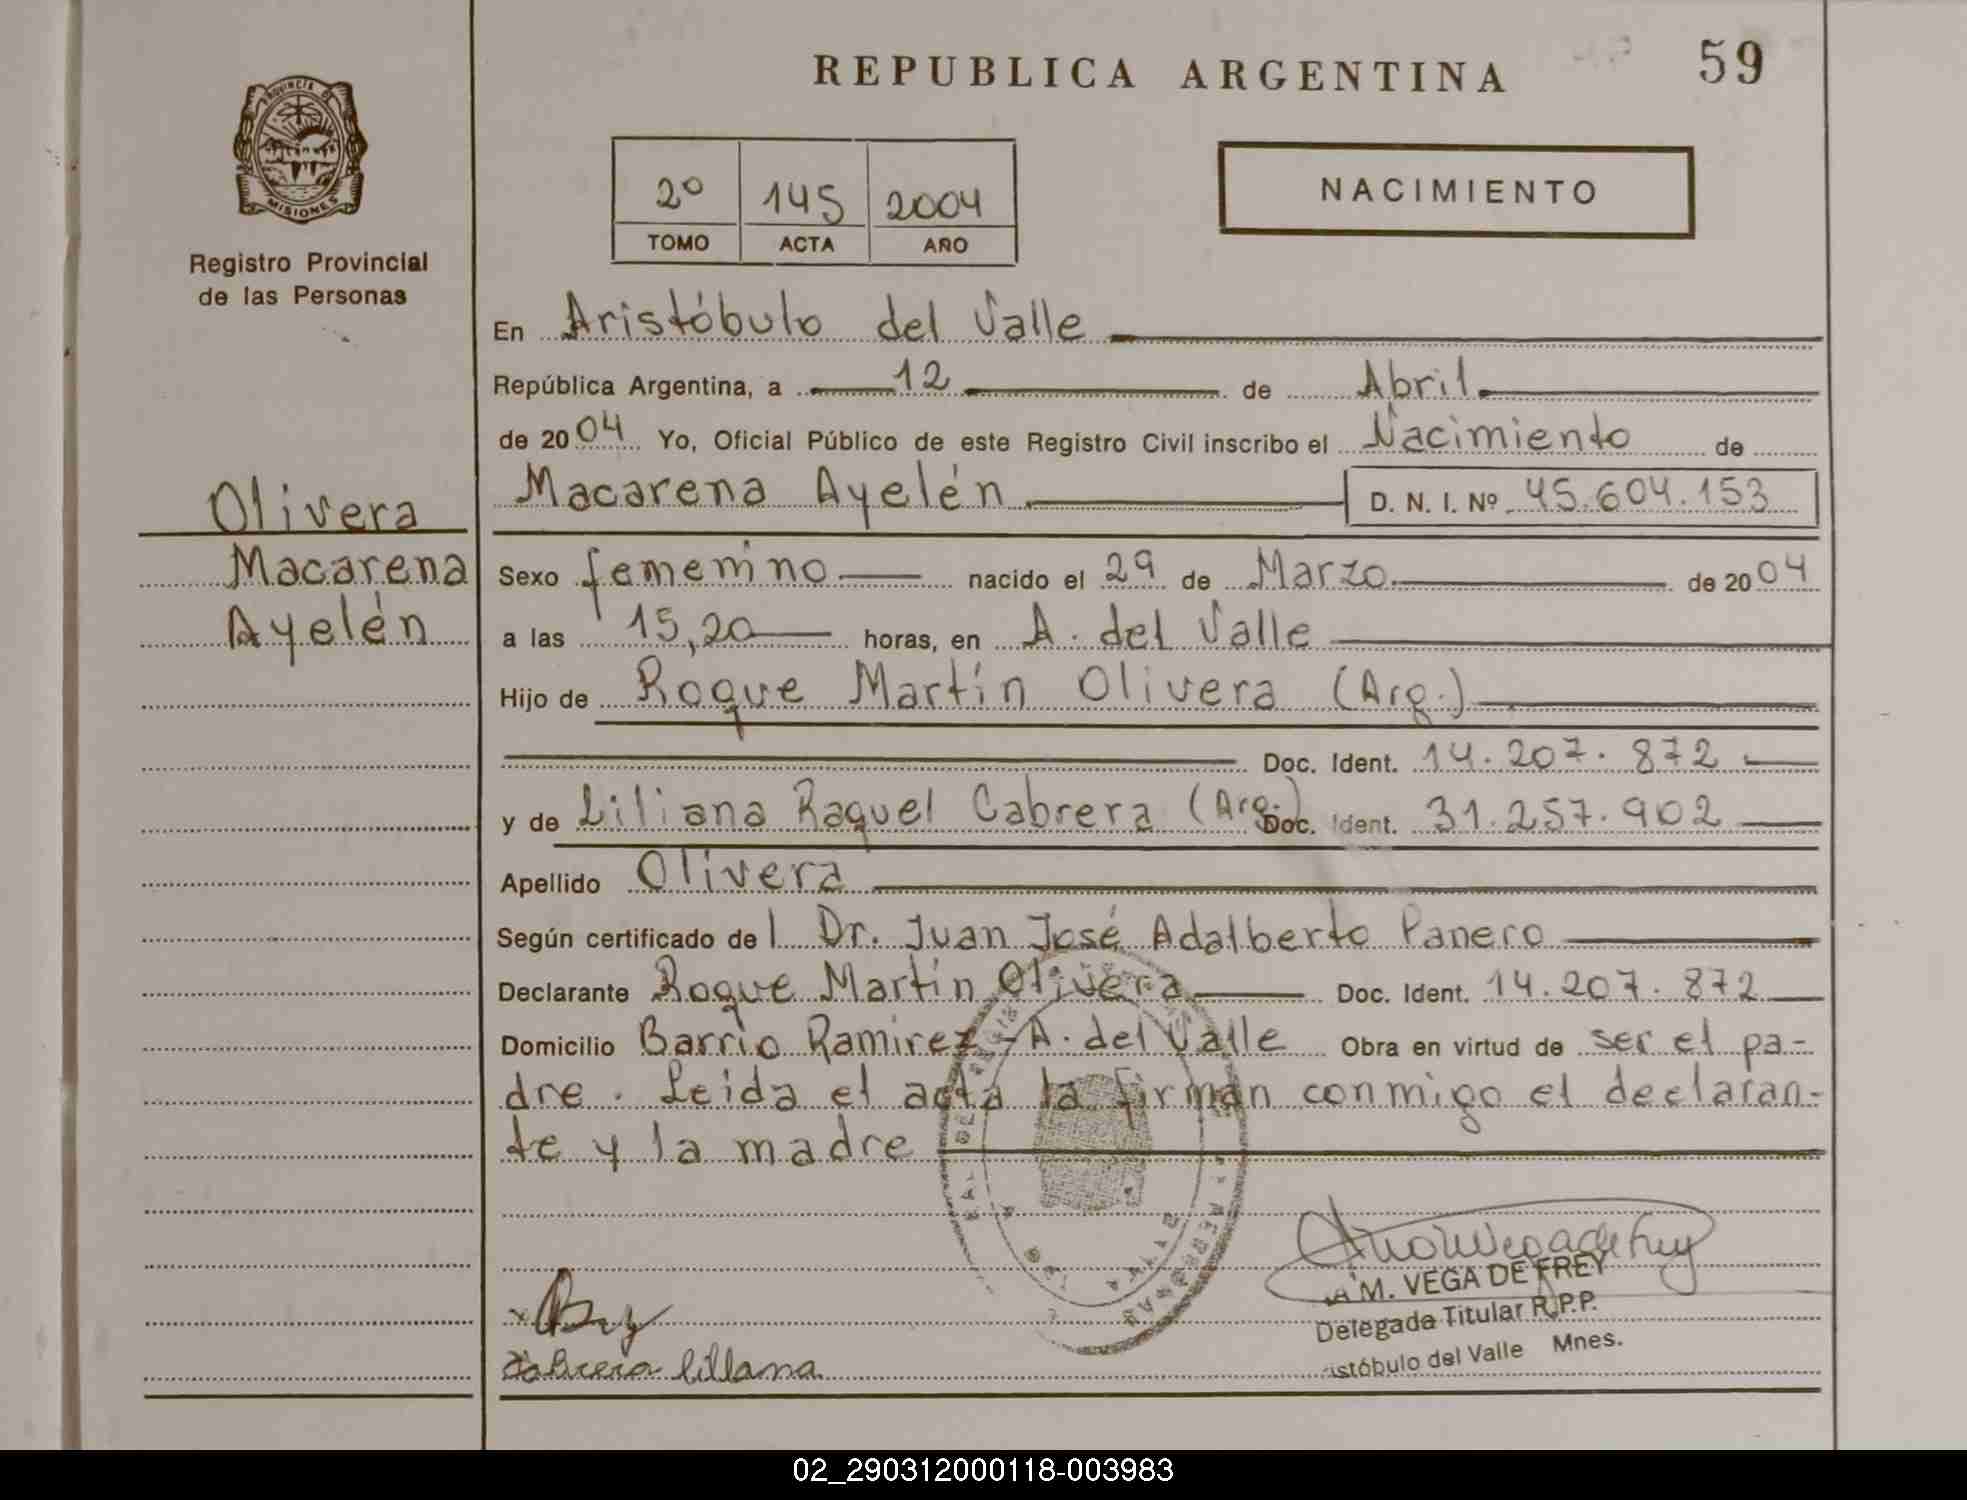 REPUBLICA ARGENTINA
59
PROVINCIA DE
MISIONES
Registro Provincial
de las Personas
2º 145 2004
TOMO ACTA AÑO
NACIMIENTO
En Aristóbulo del Valle
República Argentina, a 12 de Abril
de 2004 Yo, Oficial Público de este Registro Civil inscribo el Nacimiento de
Macarena Ayelén D. N. I. Nº 45.604.153
Olivera
Macarena
Ayelén
Sexo femenino nacido el 29 de Marzo de 2004
a las 15,20 horas, en A. del Valle
Hijo de Roque Martín Olivera (Arg.)
Doc. Ident. 14.207.872
y de Liliana Raquel Cabrera (Arg.) Doc. Ident. 31.257.902
Apellido Olivera
Según certificado del Dr. Juan José Adalberto Panero
Declarante Roque Martín Olivera Doc. Ident. 14.207.872
Domicilio Barrio Ramirez - A. del Valle Obra en virtud de ser el pa-
dre. Leida el acta la firman conmigo el declaran-
te y la madre
M. VEGA DE FREY
Delegada Titular R.P.P.
istóbulo del Valle Mnes.
Cabrera liliana
02_290312000118-003983